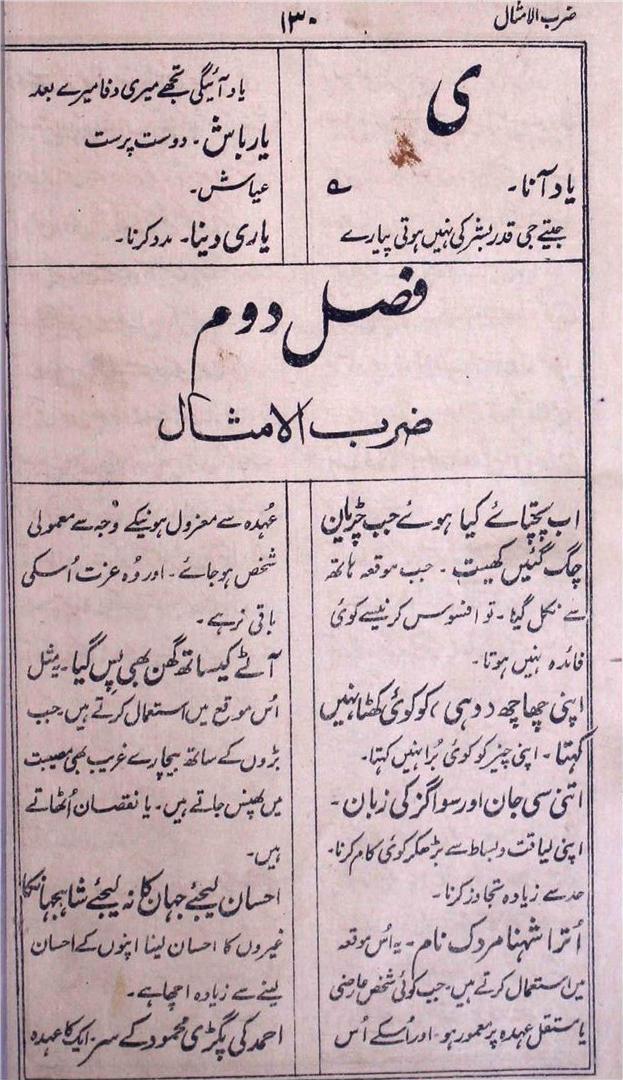 ضرب الامثال
۱۳۰
ی
یاد آنا۔ ؎
جیتے جی قدر بشر کی نہیں ہوتی پیارے
یاد آئیگی تجھے میری وفا میرے بعد
یار باش۔ دوست پرست
عیاش۔
یاری دینا۔ مدد کرنا۔
فصل دوم
ضرب الامثال
اب پچتائے کیا ہوئے جب چڑیاں
چگ گئیں کھیت۔ جب موقعہ ہاتھ
سے نکل گیا۔ تو افسوس کرنیسے کوئی
فائدہ نہیں ہوتا۔
اپنی چھاچھ (دوہی) کو کوئی کھٹا نہیں
کہتا۔ اپنی چیز کو کوئی بُرا نہیں کہتا۔
اتنی سی جان اور سوا گز کی زبان۔
اپنی لیاقت و بساط سے بڑھکر کوئی کام کرنا۔
حد سے زیادہ تجاوز کرنا۔
اُترا شہنا مردک نام۔ یہ اُس موقعہ
میں استعمال کرتے ہیں۔ جب کوئی شخص عارضی
یا مستقل عہدہ پر معمور ہو۔ اور اُسکے اُس
عُہدہ سے معزول ہونیکے وجہ سے معمولی
شخص ہو جائے۔ اور وُہ عزت اُسکی
باقی نرہے۔
آٹے کیساتھ گھن بھی پِس گیا۔ یہ مثل
اُس موقع میں استعمال کرتے ہیں۔ جب
بڑوں کے ساتھ بیچارے غریب بھی مصیبت
میں پھنس جاتے ہیں۔ یا نقصان اُٹھاتے
ہیں۔
احسان لیجئے جہان کا نہ لیجئے شاہجہانکا
غیروں کا احسان لینا اپنوں کے احسان
لینے سے زیادہ اچھا ہے۔
احمد کی پگڑی محمود کے سر۔ ایک کا عہدہ